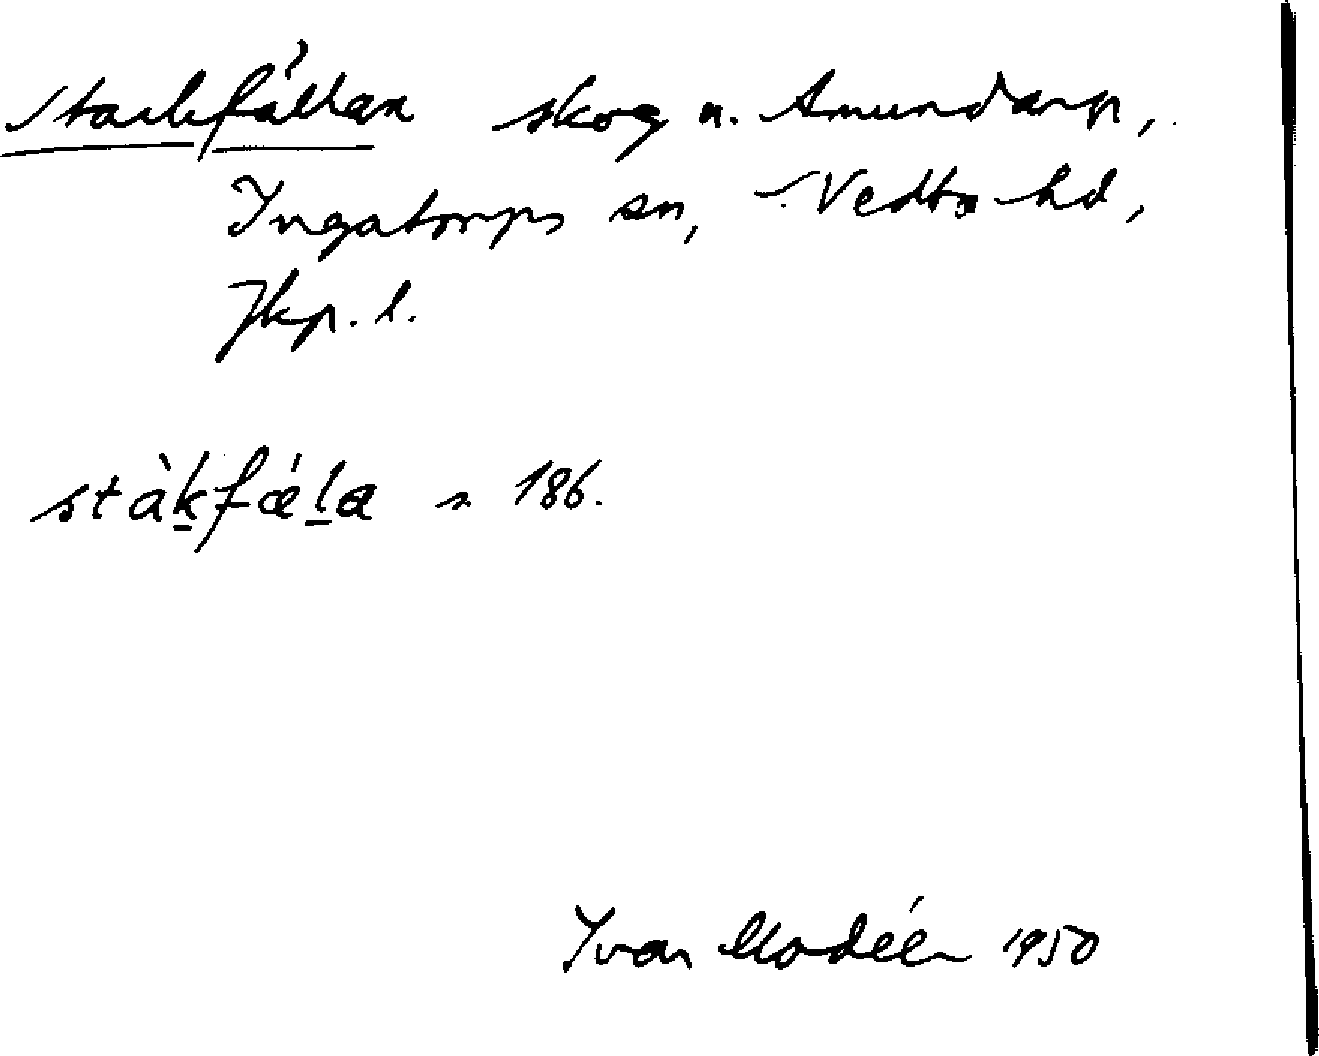 Stackfällan skog n. Amundarp,
Ingatorps sn, S. Vedbo hd,
Jkp. l.
stàk̲fǽl̲a s 186.
Ivar Modéer 1950